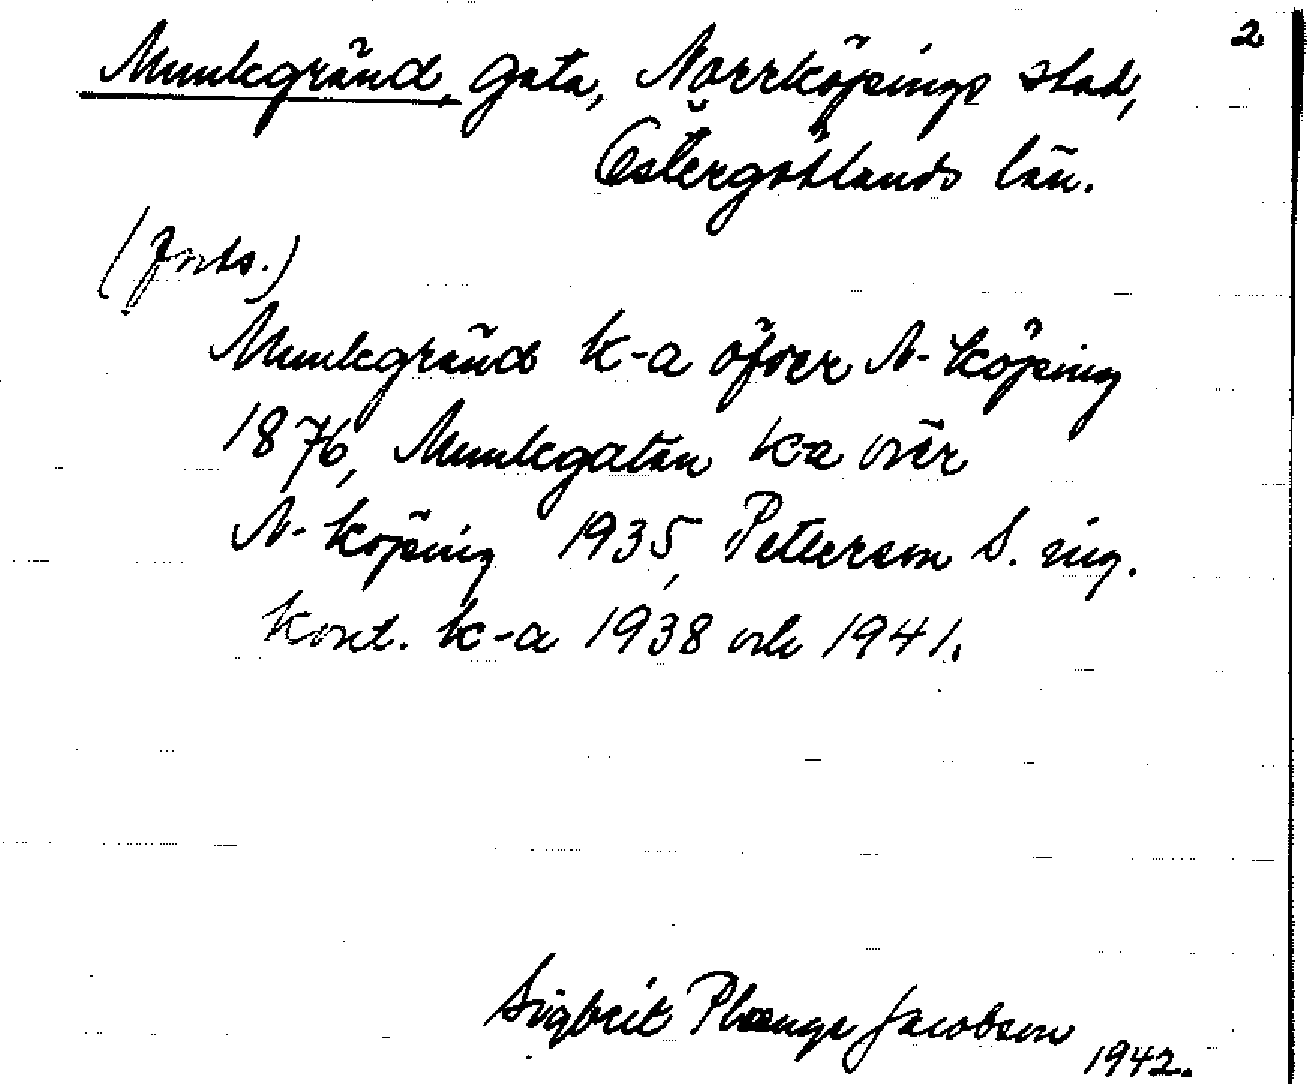 2
Munkgränd, gata, Norrköpings stad,
Östergötlands län.
(forts.)
Munkgränd k-a öfver N-köping
1876, Munkgatan k-a över
N-köping 1935, Petterson S. ing.
kont. k-a 1938 och 1941.
Sigbrit Plænge Jacobson
1942.